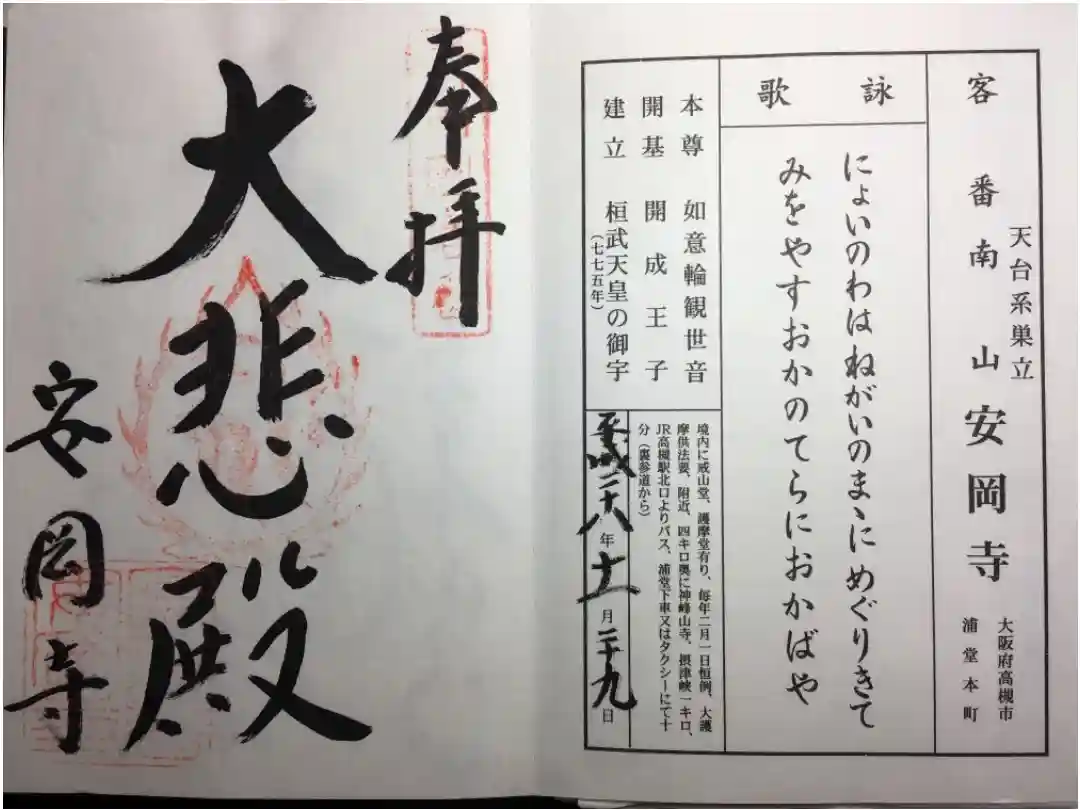 客番南山安岡寺
天台系巣立
大阪府高槻市
浦堂本町
詠歌
によいのわはねがいのまゝにめぐりきて
みをやすおかのてらにおかばや
本尊 如意輪観世音
開基 開成王子
建立 桓武天皇の御宇
(七七五年)
境内に戒山堂、護摩堂有り、毎年二月一日恒例、大護
摩供法要、附近、四キロ奥に神峰山寺、摂津峡一キロ、
JR高槻駅北口よりバス、浦堂下車又はタクシーにて十
分(裏参道から)
平成二十八年十一月二十九日
奉拝
大悲殿
安岡寺